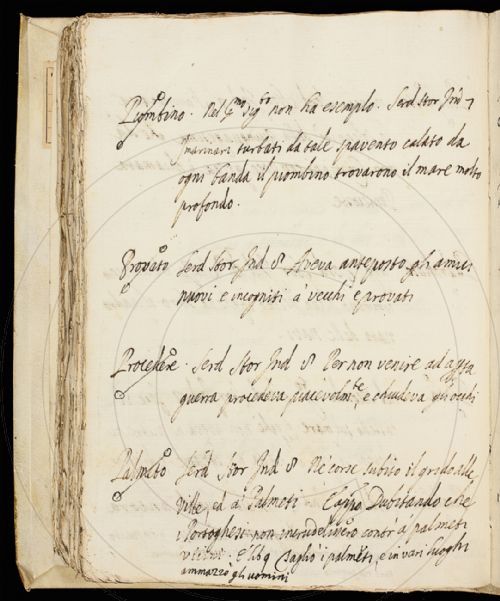 Piombino. Nel q.mo sig.to non ha esempio. Serd Stor Ind 7
marinari turbati da tale spavento calato da
ogni banda il piombino trovarono il mare molto
profondo.
Provato Serd Stor Ind 8 Aveva anteposto gli amici
nuovi e incogniti a' vecchi e provati
Procedere. Serd Stor Ind 8 Per non venire ad
guerra procedeva piacevolm.te, e chiudeva gli occhi
Palmeto Serd Stor Ind 8 Ne corse subito il grido alle
Ville, ed a' Palmeti Dubitando che
i Portoghesi non contr' a' palmeti
E lib 9 Tagliò i palmeti, e in vari luoghi
ammazzò gli uomini